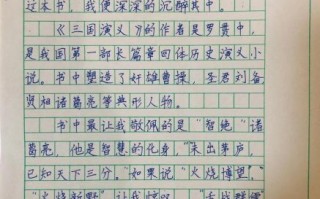 这本书，我便深深的沉醉其中。
《三国演义》的作者是罗贯中，
是我国第一部长篇章回体历史演义小
说。书中塑造了奸雄曹操，圣君刘备
贤相诸葛亮等典形人物。
书中最让我敬佩的是“智绝”诸
葛亮，他是智慧的化身，“未出茅庐
已知天下三分。”如果说“火烧博望，
“火烧新野”让我惊叹，“舌战群儒”